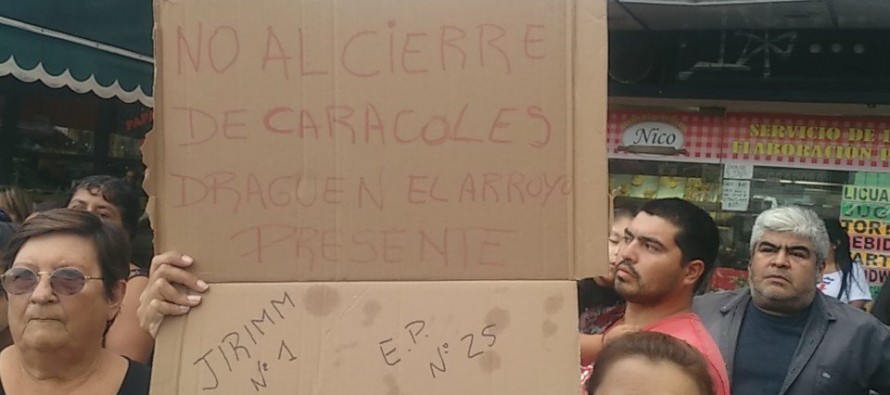 NO AL CIERRE
DE CARACOLES
DRAGUEN EL ARROYO
PRESENTE
JIRIMM
Nº 1
E.P.
Nº 25
Nico
SERVICIO DE
ELABORACIÓN